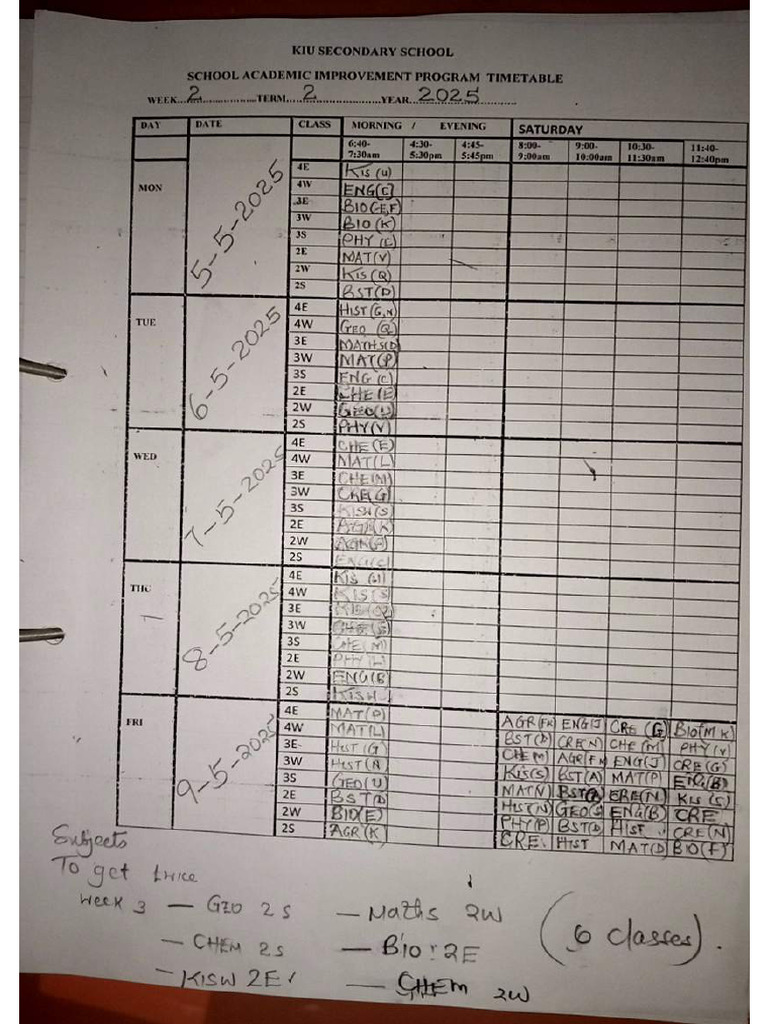 KIU SECONDARY SCHOOL
SCHOOL ACADEMIC IMPROVEMENT PROGRAM TIMETABLE
WEEK...2...TERM...2...YEAR...2025...
DAY DATE CLASS MORNING / EVENING SATURDAY
6:40-7:30am 4:30-5:30pm 4:45-5:45pm 8:00-9:00am 9:00-10:00am 10:30-11:30am 11:40-12:40pm
MON 5-5-2025
4E KIS (U)
4W ENG(C)
3E BIO(E,F)
3W BIO (K)
3S PHY (L)
2E MAT(V)
2W KIS(Q)
2S BST(D)
TUE 6-5-2025
4E HIST(G,N)
4W GEO (Q)
3E MATHS(D)
3W MAT(P)
3S ENG (C)
2E CHE(E)
2W GEO(U)
2S PHY(V)
WED 7-5-2025
4E CHE(E)
4W MAT(L)
3E CHE(M)
3W CRE(G)
3S KISW(S)
2E AGR(K)
2W AGR
2S ENG(C)
THC 8-5-2025
4E KIS
4W KIS(S)
3E KIS
3W CHE(E)
3S CHE(M)
2E PHY(L)
2W ENG(B)
2S KISW
FRI 9-5-2025
4E MAT(P) AGR(FK) ENG(J) CRE(G) BIO(MK)
4W MAT(L) BST(D) CRE(N) CHE(M) PHY(V)
3E HIST(G) CHE(M) AGR(FK) ENG(J) CRE(G)
3W HIST(N) KIS(S) BST(A) MAT(P) ENG(B)
3S GEO(U) MAT(N) BST(A) CRE(N) KIS(S)
2E BST(D) HIST(N) GEO(S) ENG(B) CRE
2W BIO(E) PHY(P) BST(D) HIST CRE(N)
2S AGR(K) CRE HIST MAT(D) BIO(F)
Subjects
To get twice
Week 3 — GEO 2S — Maths 2W (6 classes).
— CHEM 2S — Bio: 2E
— KISW 2E — CHEM 2W